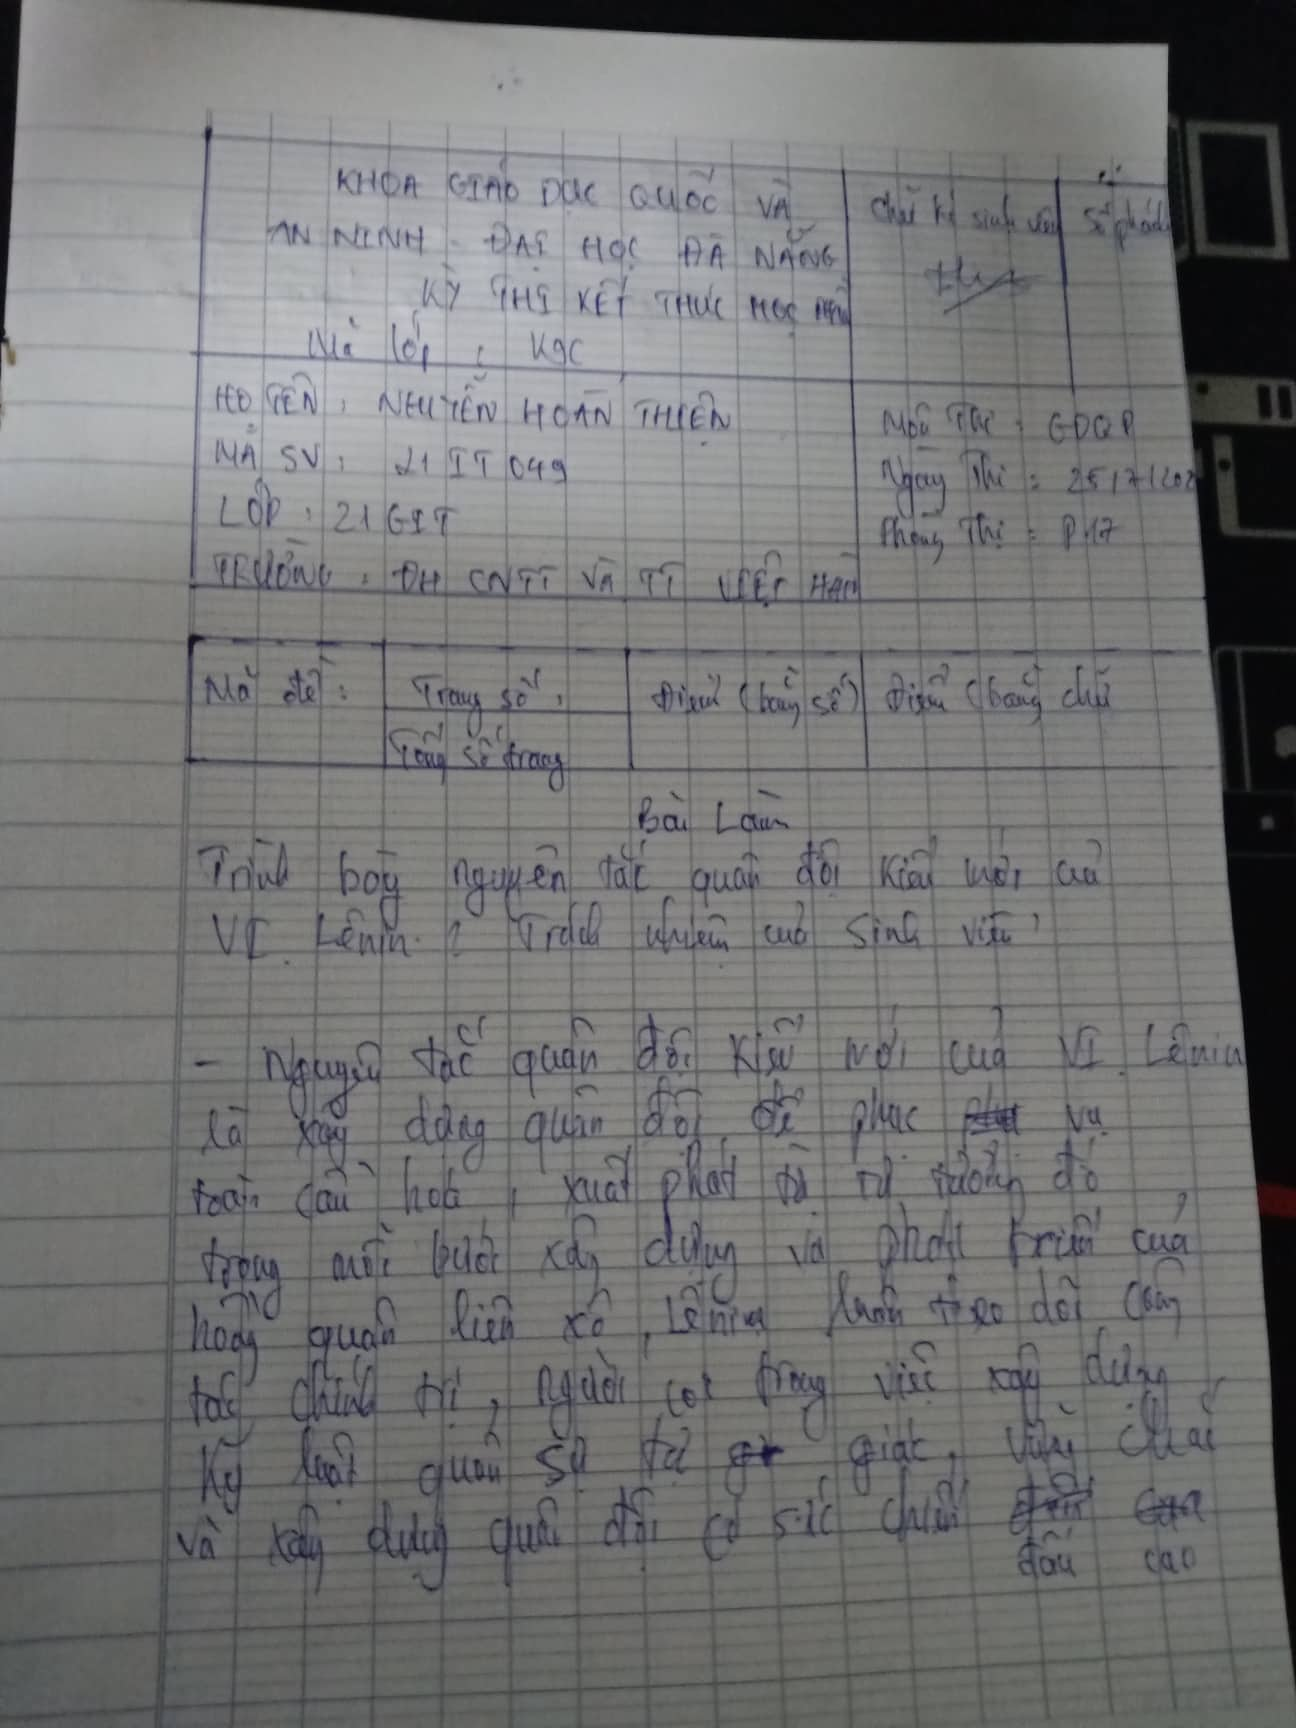 KHOA GIÁO DỤC QUỐC VÀ
AN NINH - ĐẠI HỌC ĐÀ NẴNG
KỲ THI KẾT THÚC HỌC PHẦN
Mã lớp : K9C
Chữ ký sinh viên
Số phách
HỌ TÊN : NGUYỄN HOÀN THIỆN
MÃ SV : 21IT049
LỚP : 21GIT
TRƯỜNG : ĐH CNTT VÀ TT VIỆT HÀN
Môn Thi : GDQP
Ngày Thi : 25/7/202
Phòng Thi : P.17
Mã đề :
Trang số :
Tổng số trang
Điểm (bằng số)
Điểm (bằng chữ
Bài Làm
Trình bày nguyên tắc quân đội kiểu mới của
VI. Lênin ? Trách nhiệm của sinh viên
- Nguyên tắc quân đội kiểu mới của VI. Lênin
là xây dựng quân đội để phục vụ
toàn dân hoá , xuất phát từ tư tưởng đó
trong mỗi bước xây dựng và phát triển của
hồng quân liên xô , Lênin luôn theo dõi công
tác chính trị , người coi trọng việc xây dựng
kỷ luật quân sự tự giác ,
và xây dựng quân đội có sức chiến
đấu cao